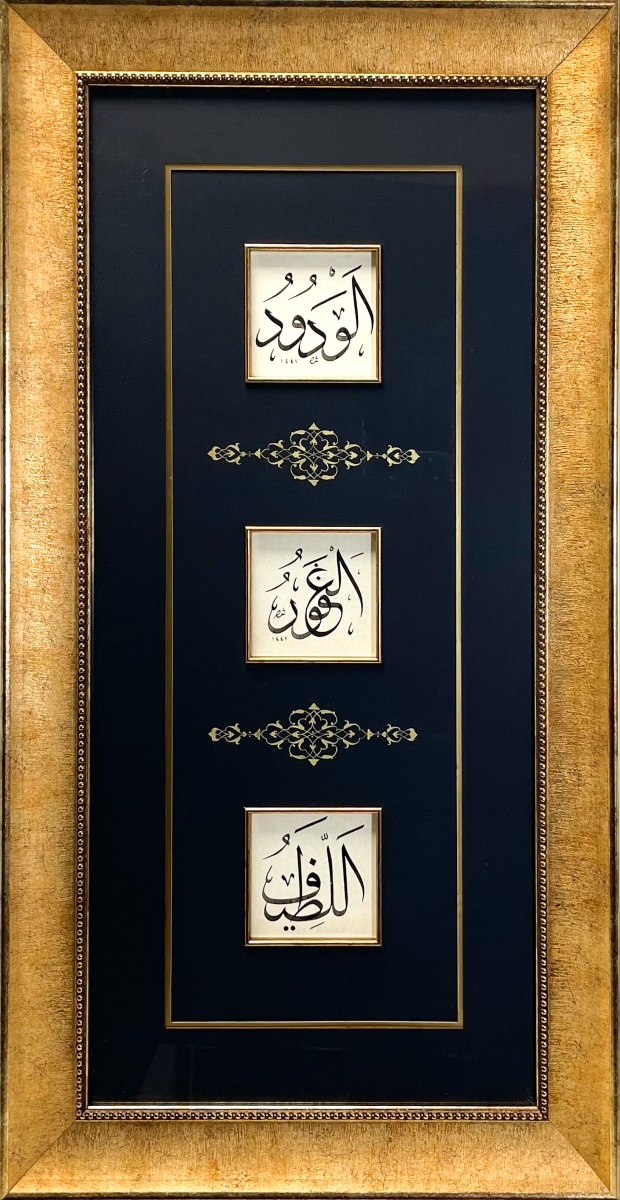 اَلْوَدُودُ
١٤٤٢
اَلْغَفُورُ
١٤٤٢
اَللَّطِيفُ